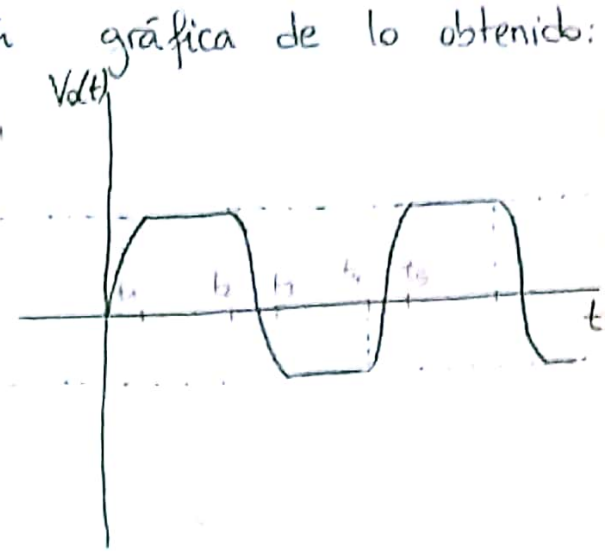 gráfica de lo obtenido:
Vo(t)
t₁ t₂ t₃ t₄ t₅
t